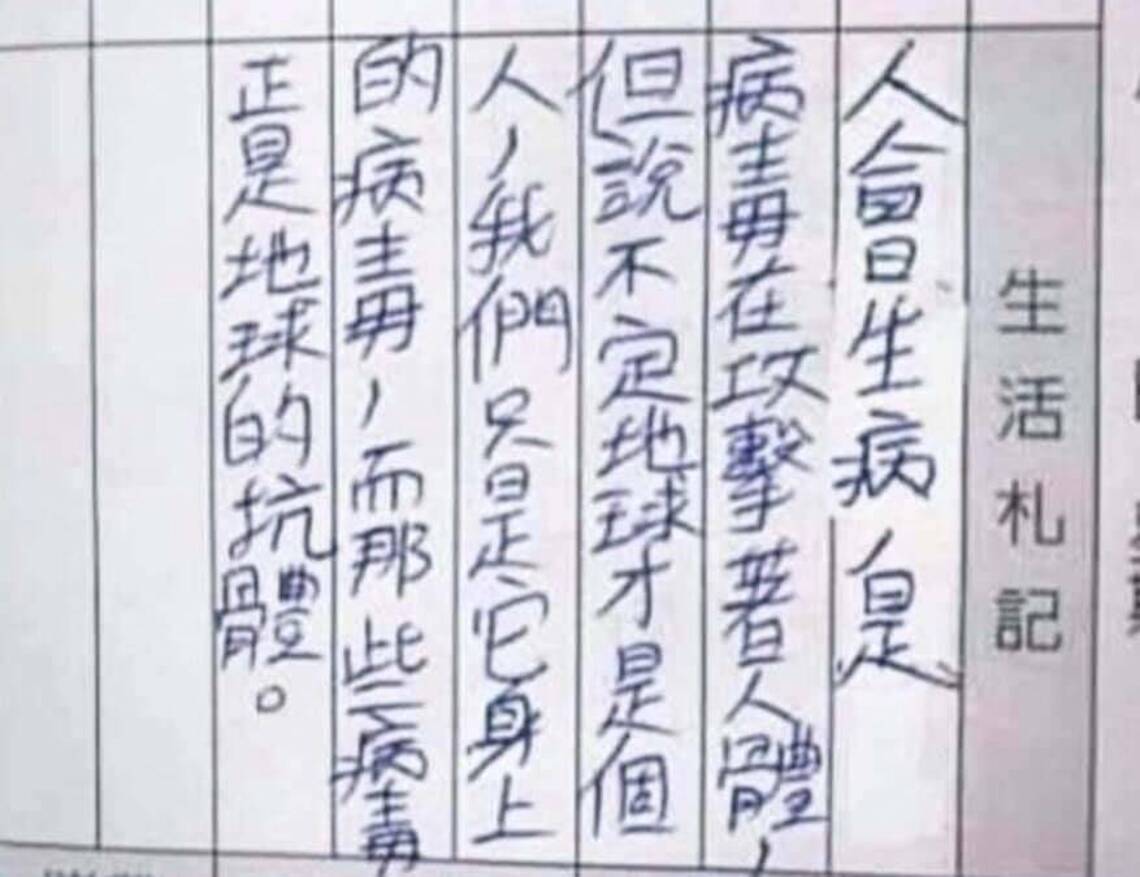 生活札記
人會生病是
病毒在攻擊著人體,
但說不定地球才是個
人,我們只是它身上
的病毒,而那些病毒
正是地球的抗體。